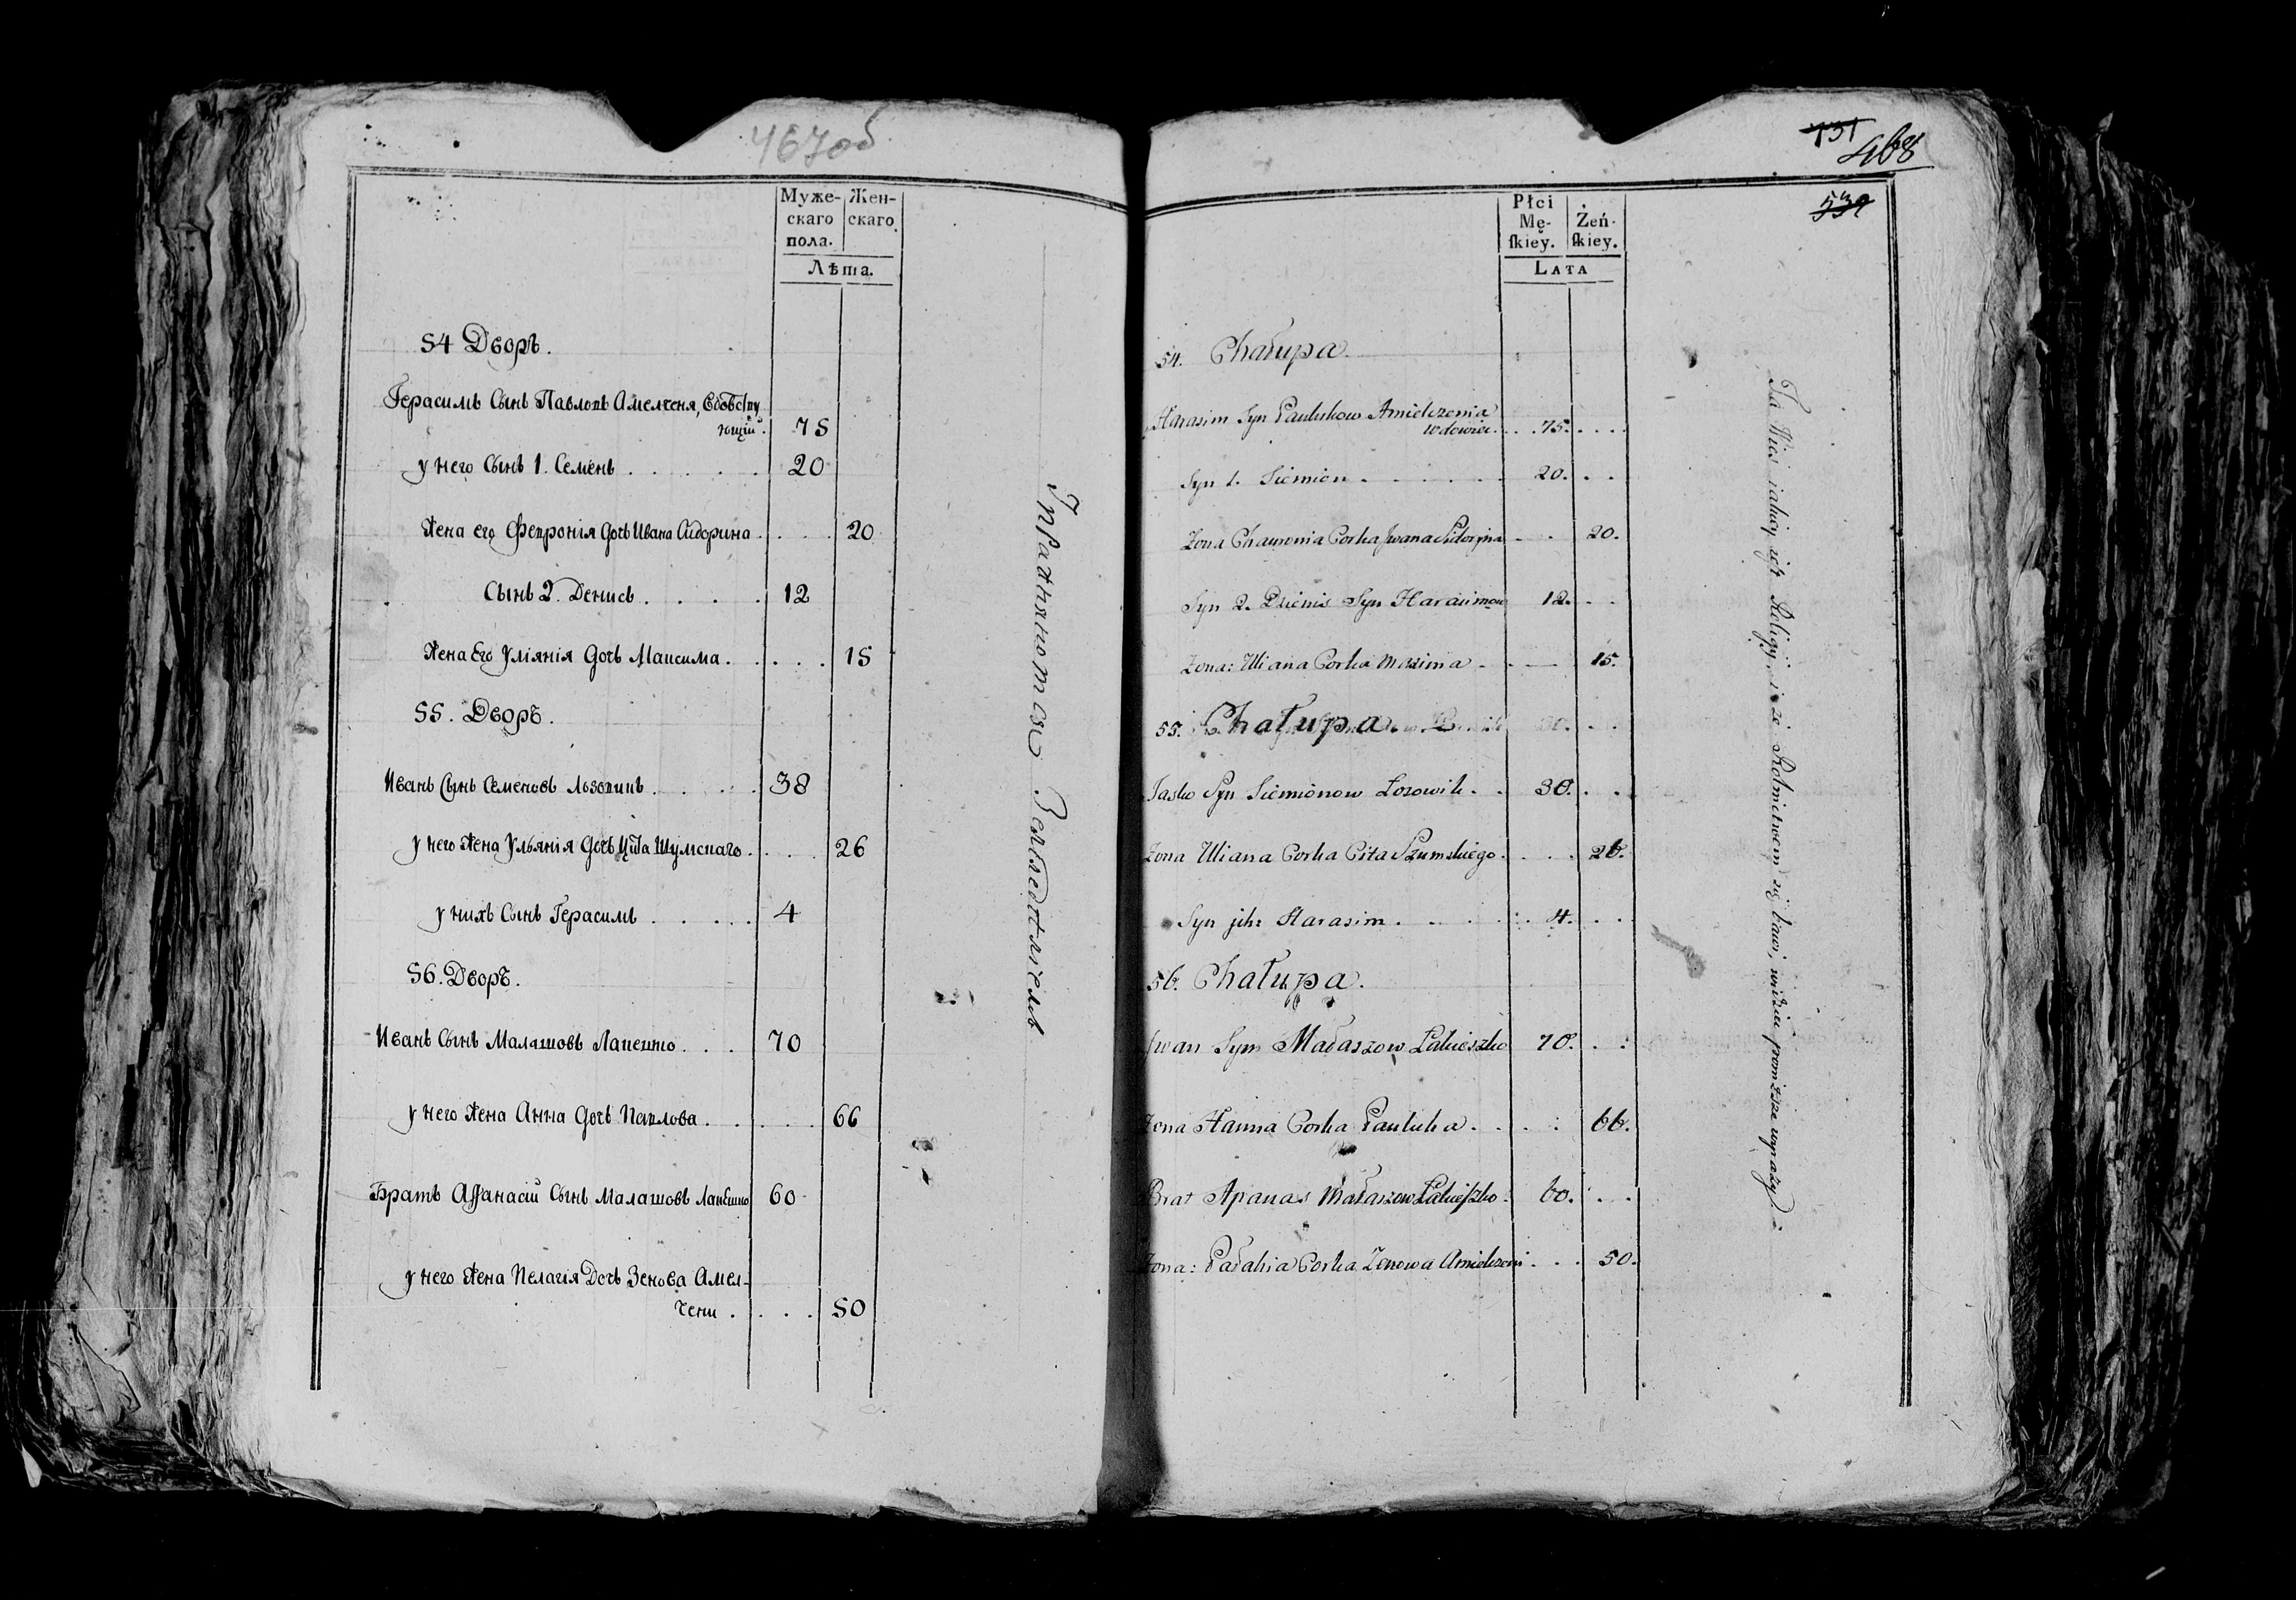 467об
Муже-
скаго
пола.
Жен-
скаго
Лѣта.
54 Дворъ.
Герасимъ Сынъ Павловъ Амелченя, Вдовству
ющій.
75
у него Сынъ 1. Семенъ . . . . . 20
Жена его Февронія Дочь Ивана Сидорина . . . . 20
Сынъ 2. Денисъ . . . . 12
Жена Его Уліянія Дочь Максима . . . . 15
55. Дворъ.
Иванъ Сынъ Семеновъ Лозовикъ . . . . 38
у него Жена Ульянія Дочь Цита Шумскаго . . . . 26
у нихъ Сынъ Герасимъ . . . . . 4
56. Дворъ.
Иванъ Сынъ Малашовъ Лакешко . . . 70
у него Жена Анна Дочь Павлова . . . . . 66
Братъ Афанасій Сынъ Малашовъ Лакешко 60
у него Жена Пелагія Дочь Зенова Амел-
чени . . . . 50
431
468
539
Płci
Mę-
ſkiéy.
Żeń-
ſkiey.
LATA
54. Chałupa.
Harasim Syn Paulukow Amielczenia
wdowiec . . . 75. . . . .
Syn 1. Siemion . . . . . . 20. . .
Żona Chauronia Corka Jwana Sidoryna . . 20.
Syn 2. Dzienis Syn Harasimow 12. . .
Żona: Uliana Corka Maxima . . — 15.
55. Chałupa.
Jasko Syn Siemionow Łozowik . . 38. . .
Żona Uliana Corka Cita Szumskiego . . . . 26.
Syn jch: Harasim . . . . . . 4. . .
56. Chałupa.
Jwan Syn Małaszow Łakieszko 70. . .
Żona Hanna Corka Pauluka . . . . 66.
Brat Apanas Małaszow Łakieſzko . 60. . .
Żona: Pałahia Corka Zenowa Amielczeni . . . 50.